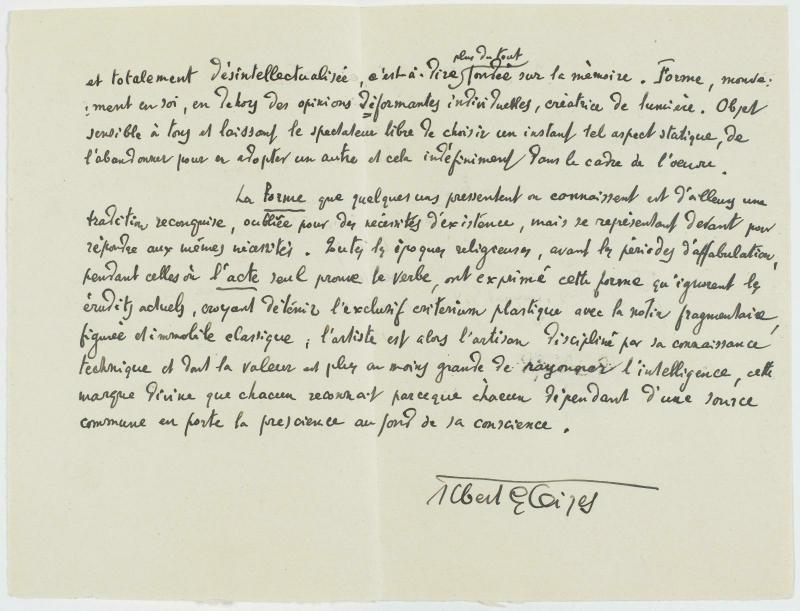 plus du tout
et totalement désintellectualisée, c'est-à-dire fondée sur la mémoire. Forme, mouve-
-ment en soi, en dehors des opinions déformantes individuelles, créatrice de lumière. Objet
sensible à tous et laissant le spectateur libre de choisir un instant tel aspect statique, de
l'abandonner pour en adopter un autre et cela indéfiniment dans le cadre de l'oeuvre.
La Forme que quelques uns pressentent ou connaissent est d'ailleurs une
tradition reconquise, oubliée pour des nécéssités d'existence, mais se représentant devant pour
répondre aux mêmes nécéssités. Toutes les époques religieuses, avant les périodes d'affabulation,
pendant celles où l'acte seul prouve le verbe, ont exprimé cette forme qu'ignorent les
érudits actuels, croyant détenir l'exclusif criterium plastique avec la notion fragmentaire,
figurée et immobile classique ; l'artiste est alors l'artisan discipliné par sa connaissance
technique et dont la valeur est plus ou moins grande de rayonner l'intelligence, cette
marque divine que chacun reconnait parceque chacun dépendant d'une source
commune en porte la prescience au fond de sa conscience.
Albert Gleizes